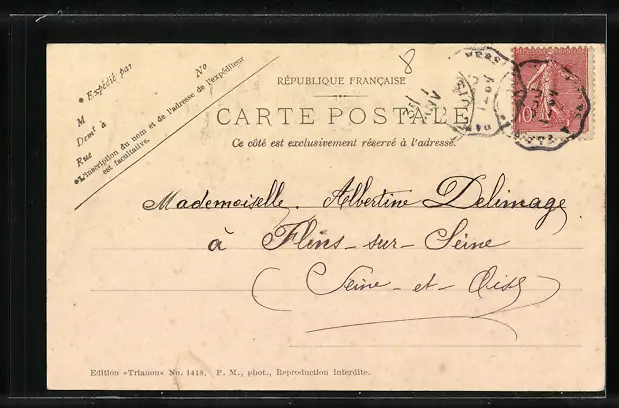 * Expédié par
No
M
Demt à
Rue
*L'inscription du nom et de l'adresse de l'expéditeur
est facultative.
8
RÉPUBLIQUE FRANÇAISE
CARTE POSTALE
Ce côté est exclusivement réservé à l'adresse.
10
Mademoiselle. Albertine Delimage
à Flins-sur-Seine
(Seine-et-Oise)
Edition »Trianon« No. 1418. P. M., phot., Reproduction interdite.